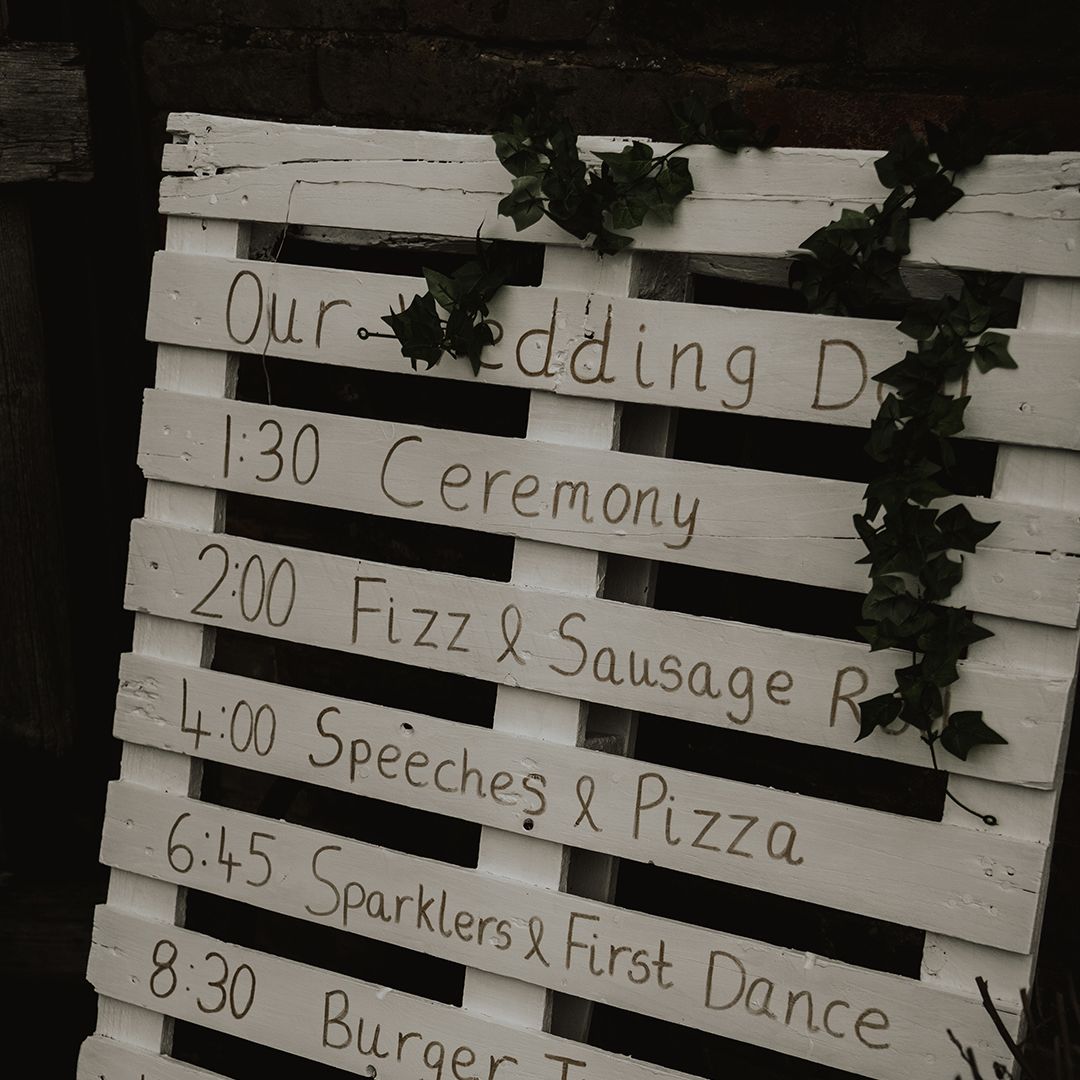 Our Wedding Day
1:30 Ceremony
2:00 Fizz & Sausage
4:00 Speeches & Pizza
6:45 Sparklers & First Dance
8:30 Burger